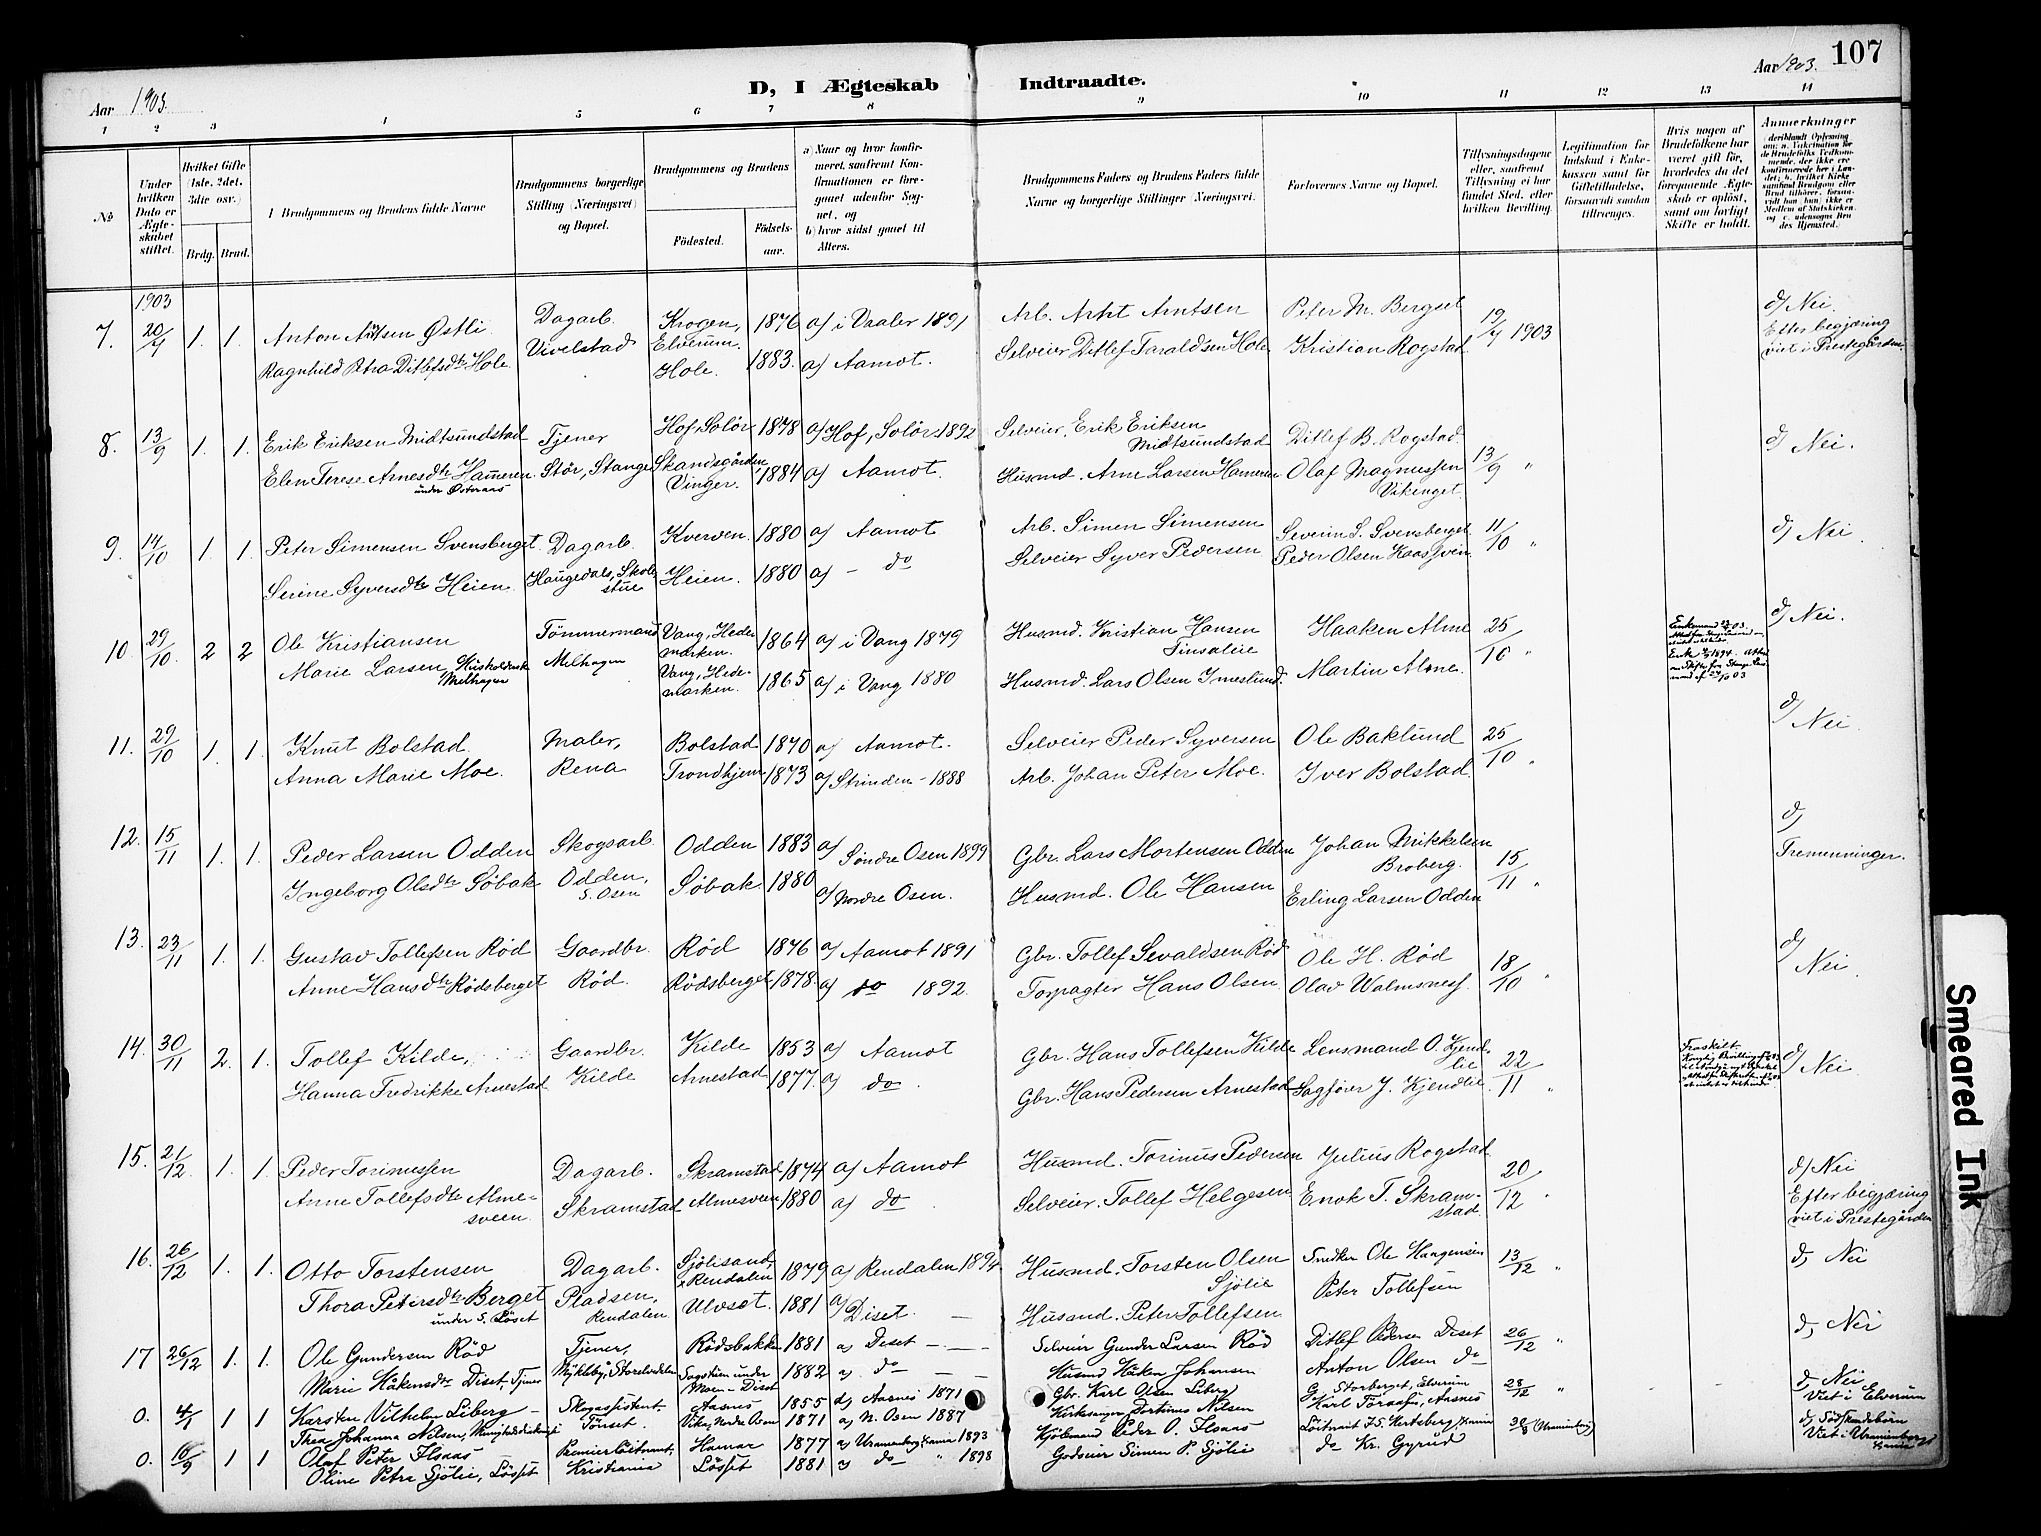 Aar 1903.
D, I Ægteskab Indtraadte.
Aar 1903. 107
1 2 3 4 5 6 7 8 9 10 11 12 13 14
№
Under hvilken Dato er Ægteskabet stiftet.
Hvilket Gifte (1ste, 2det, 3die osv.)
Brdg. Brud.
Brudgommens og Brudens fulde Navne
Brudgommens borgerlige Stilling (Næringsvei) og Bopæl.
Brudgommens og Brudens
Födested.
Födselsaar.
a) Naar og hvor konfirmeret, saafremt Konfirmationen er foregaaet udenfor Sognet, og
b) hvor sidst gaaet til Alters.
Brudgommens Faders og Brudens Faders fulde Navne og borgerlige Stillinger (Næringsvei).
Forlovernes Navne og Bopæl.
Tillysningsdagene eller, saafremt Tillysning ei har fundet Sted, efter hvilken Bevilling.
Legitimation for Indskud i Enkekassen samt for Giftetilladelse, forsaavidt saadan tiltrænges.
Hvis nogen af Brudefolkene har været gift før, hvorledes da det foregaaende Ægteskab er opløst, samt om lovligt Skifte er holdt.
Anmærkninger
1903
7. 20/4 1. 1. Anton Østli Dagarb. Krogen, Elverum. 1876 a) i Vaaler 1891 Arb. Arnt Arntsen Peter M. Bergset 19/4 1903 d) Nei
Ragnhild Petra Ditlefsdtr Hole Vivelstad Hole. 1883. a) Aamot. Selveier Ditlef Taraldsen Hole Kristian Rogstad Efter begjæring viet i Prestegården.
8. 13/9 1. 1. Erik Eriksen Midtsundstad Tjener Hof, Solör 1878 a) Hof, Solör 1892 Selveier Erik Eriksen Midtsundstad Ditlef B. Rogstad. 13/9 " d) Nei.
Elen Terese Arnesdtr Hameren under Østeraas Stor, Stange Skandsgården Vinger. 1884 a) Aamot. Husmd. Arne Larsen Hameren Olaf Magnussen Vikenget
9. 14/10 1. 1. Peter Simensen Svensberget Dagarb. Kverven. 1880 a) Aamot Arb. Simen Simensen Severin S. Svensberget 11/10 " d) Nei
Serine Syversdtr Heien Haugedals, Skolestue Heien. 1880 a) - do Selveier Syver Pedersen Peder Olsen
10. 29/10. 2 2 Ole Kristiansen Tömmermand Vang, Hedemarken. 1864 a) i Vang 1879 Husmd. Kristian Hansen Haaken Alme 25/10 " d) Nei.
Marie Larsen, Melhagen Melhagen Vang, Hedemarken. 1865 a) i Vang 1880 Husmd. Lars Olsen Imeslund. Martin Alme.
11. 29/10 1. 1. Knut Bolstad Maler, Bolstad 1870 a) Aamot. Selveier Peder Syversen Ole Baklund 25/10 " d) Nei
Anna Marie Moe. Rena Trondhjem 1873 a) Strinden - 1888 Arb. Johan Peter Moe. Iver Bolstad
12. 15/11 1. 1. Peder Larsen Odden Skogsarb. Odden 1883 a) Söndre Osen 1899 Gbr. Lars Mortensen Odden Johan Mikkelsen Broberg. 15/11 " d) Tremenninger.
Ingeborg Olsdtr Söbak Odden, S. Osen Söbak 1880 a) Nordre Osen. Husmd. Ole Hansen Erling Larsen Odden
13. 23/11 1. 1. Gustav Tollefsen Röd Gaardbr. Röd 1876 a) Aamot 1891 Gbr. Tollef Sevaldsen Röd Ole H. Röd 18/10 " d) Nei
Anne Hansdtr Rödsberget Röd. Rödsberget 1878. a) do 1892. Torpagter Hans Olsen Olav Walmsness.
14. 30/11 2. 1. Tollef Kilde, Gaardbr. Kilde 1853 a) Aamot Gbr. Hans Tollefsen Kilde Lensmand O. Kjendlie 22/11 " Fraskilt d) Nei
Hanna Fredrikke Arnestad Kilde Arnestad 1877. a) do. Gbr. Hans Pedersen Arnestad Sagförer J. Kjendlie.
15. 21/12. 1. 1. Peder Torinussen Dagarb. Skramstad 1874 a) Aamot Husmd. Torinus Pedersen Julius Rogstad 20/12 " d) Nei
Anne Tollefsdtr Almesveen. Skramstad Almesveen 1880 a) do Selveier. Tollef Helgesen Enok T. Skramstad. Efter begjæring viet i Prestegården
16. 26/12 1. 1. Otto Torstensen Dagarb. Sjölisand, Rendalen 1879 a) Rendalen 1894 Husmd. Torsten Olsen Sjölie Snedker Ole Haagensen 13/12 " d) Nei
Thora Petersdtr Berget under S. Löset Pladsen, Rendalen Ulvset. 1881 a) Diset. — Husmd. Peter Tollefsen Peter Tollefsen
17 26/12 1. 1. Ole Gundersen Röd Tjener, Rödsbakke 1881 a) Diset — Selveier Gunder Larsen Röd Ditlef Pedersen Diset 26/12 " d) Nei
Marie Håkensdtr Diset, Tjener Mykleby, Storelvedalen under Moen - Diset 1882 a) do — Husmd Håken Johansen Anton Olsen do
0. 4/1 1 1 Karsten Vilhelm Liberg - Skogassistent, Aasnes 1855 a) Aasnes 1871 Gbr. Karl Olsen Liberg G. Storberget, Elverum 28/12 " d) Nei
Thea Johanna Nilsen, Tönset. Vika, Nordre Osen 1871 a) N. Osen 1887 Kirkesanger Nilsen Karl Aasnes Viet i Elverum
0. 10/9 1 1 Olaf Peter Ilsaas Premierlöitnant, Hamar 1877 a) Uranienborg 1893 Kjöbmand Peder O. Ilsaas Löitnant 30/8 (Uranienborg) d) Södskendebörn
Oline Petra Sjölie, Lösset Kristiania Lösset 1881 a) do " 1898 Godseier Simen P. Sjölie do Kr. Gyrud Viet i Uranienborg
Smeared Ink